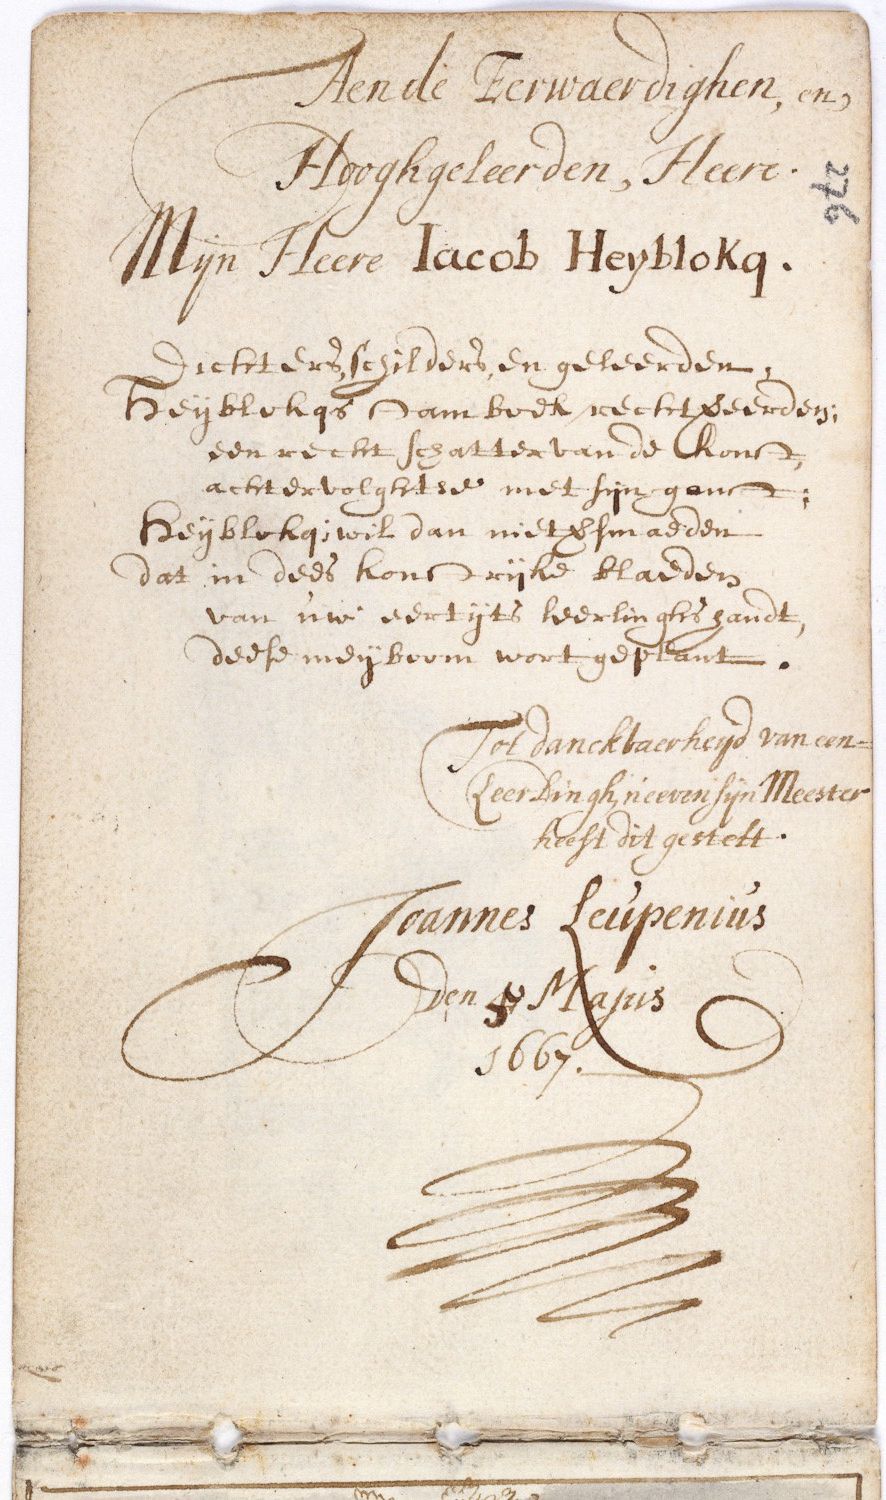 Aen de Eerwaerdighen, en,
Hooghgeleerden, Heere.
276
Mijn Heere Iacob Heyblokq.
Dichters, schilders, en geleerden,
Heyblokqs stamboek recht veerden;
een recht schatter van de konst,
achtervolght se met sijn gonst;
Heyblokq; wil dan niet versmaeden
dat in dees konstrijke blaeden
van uw eertijts leerlinghs handt,
deese meyboom wort geplant.
Tot danckbaerheyd van een
Leerlingh, neeven sijn Meester
heeft dit gestelt.
Joannes Leupenius
den Majus
1667.